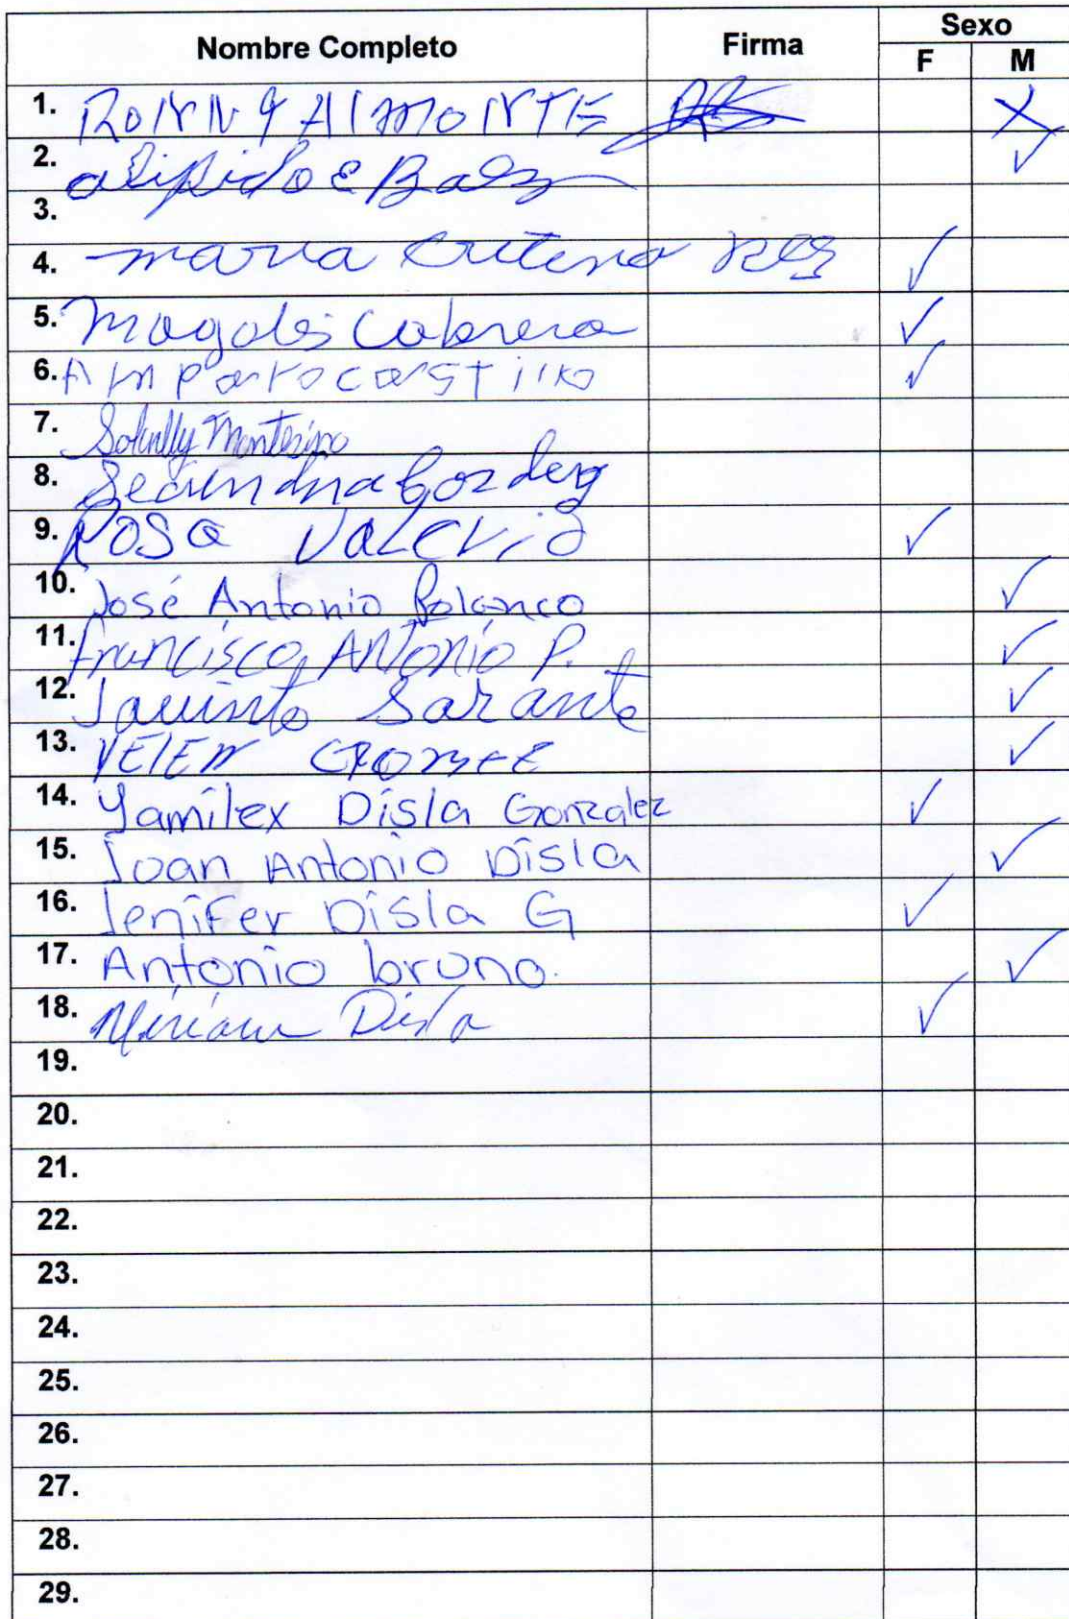 Nombre Completo Firma Sexo
F M
1. RONNY AlMONTE X
2. alipido e Baez ✓
3.
4. maria ✓
5. Magalis Cabrera ✓
6. Amparo castillo ✓
7. Solanlly Monterino
8. 
9. Rosa Valerio ✓
10. José Antonio Polanco ✓
11. Francisco Antonio P. ✓
12. Jacinto Sarante ✓
13. ✓
14. Yamilex Disla Gonzalez ✓
15. Joan Antonio Disla ✓
16. Jenifer Disla G ✓
17. Antonio bruno. ✓
18. Miriam Disla ✓
19.
20.
21.
22.
23.
24.
25.
26.
27.
28.
29.